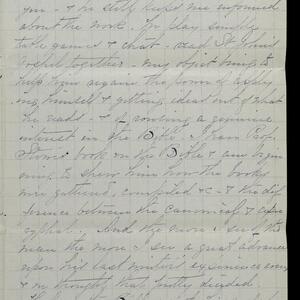 you - & he still kept me informed
about the work. We play simple
table games & chat - read St John's
Gospel together - my object being to
help him regain the power of apply-
ing himself & getting ideas out of what
he reads - & of rousing a genuine
interest in the Bible. I have Prof.
Stowe's book on the Bible & am begin-
ning to show him how the books
were gathered, compiled &c - & the dif-
ference between the canonical & apoc-
ryphal. And the more I see this
man the more I see a great advance
upon his last winter's experiences even,
& my thought that pretty decided.